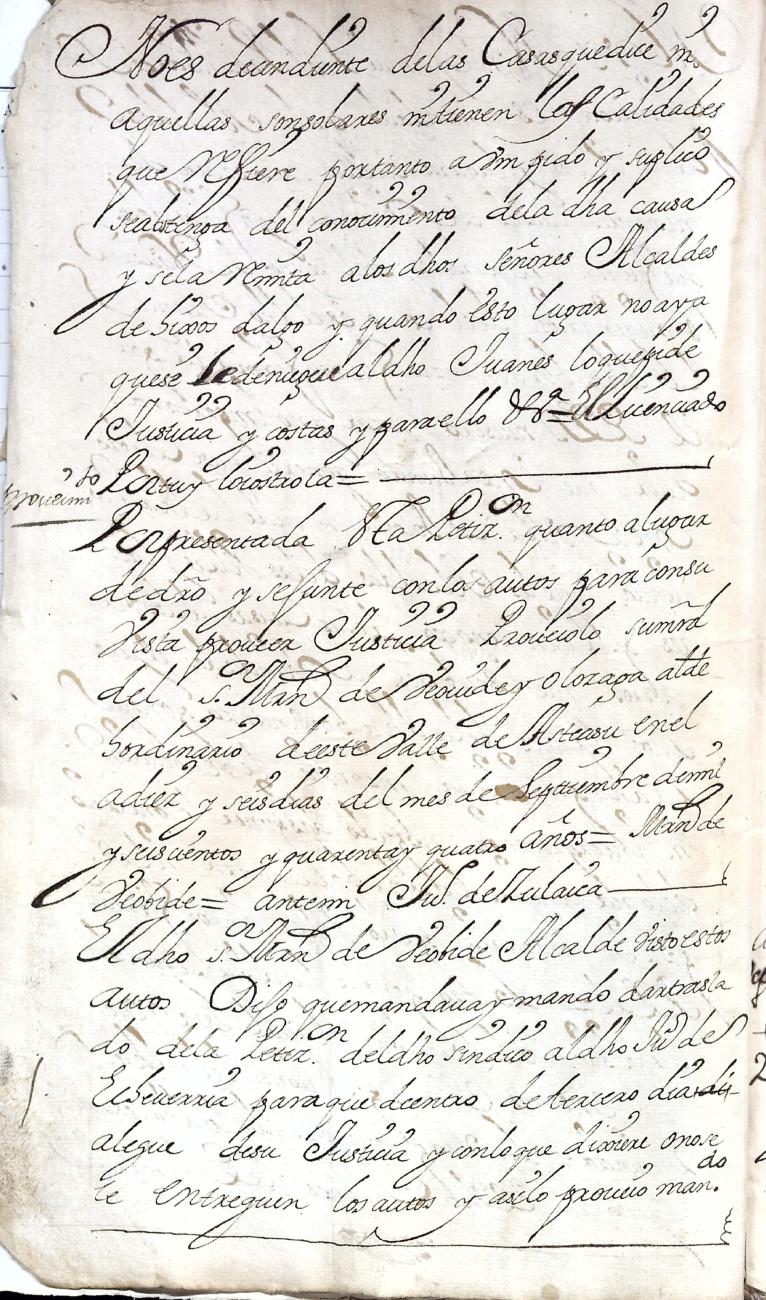 No es decendiente de las Casas que dice ni
aquellas son solares ni tienen las Calidades
que Refiere por tanto a Vm pido y suplico
se abstenga del conocimiento de la dha causa
y se la Remita a los dhos señores Alcaldes
de hixos dalgo y quando esto lugar no aya
que se le deniegue al dho Juanes lo que pide
Justicia y costas y para ello &ª = El licenciado
=
proueimto
Por presentada esta Petizon quanto a lugar
de dro y se junte con los autos para con su
Vista proueer Justicia Proueiolo su mrd
del sor Mrn de Veouide y olozaga alde
hordinario de este Valle de Asteasu en el
a diez y seis dias del mes de Septiembre de mil
y seiscientos y quarenta y quatro años = Mrn de
Veobide = ante mi Ju. de Zulaica
El dho sor Mrn de Veobide Alcalde visto estos
autos Dijo que mandaua y mando dar trasla
do de la Petizon del dho sindico al dho Ju de
Echeverria para que dentro de tercero dia
alegue de su Justicia y con lo que dixiere o no se
le entreguen los autos y asi lo proueio mando